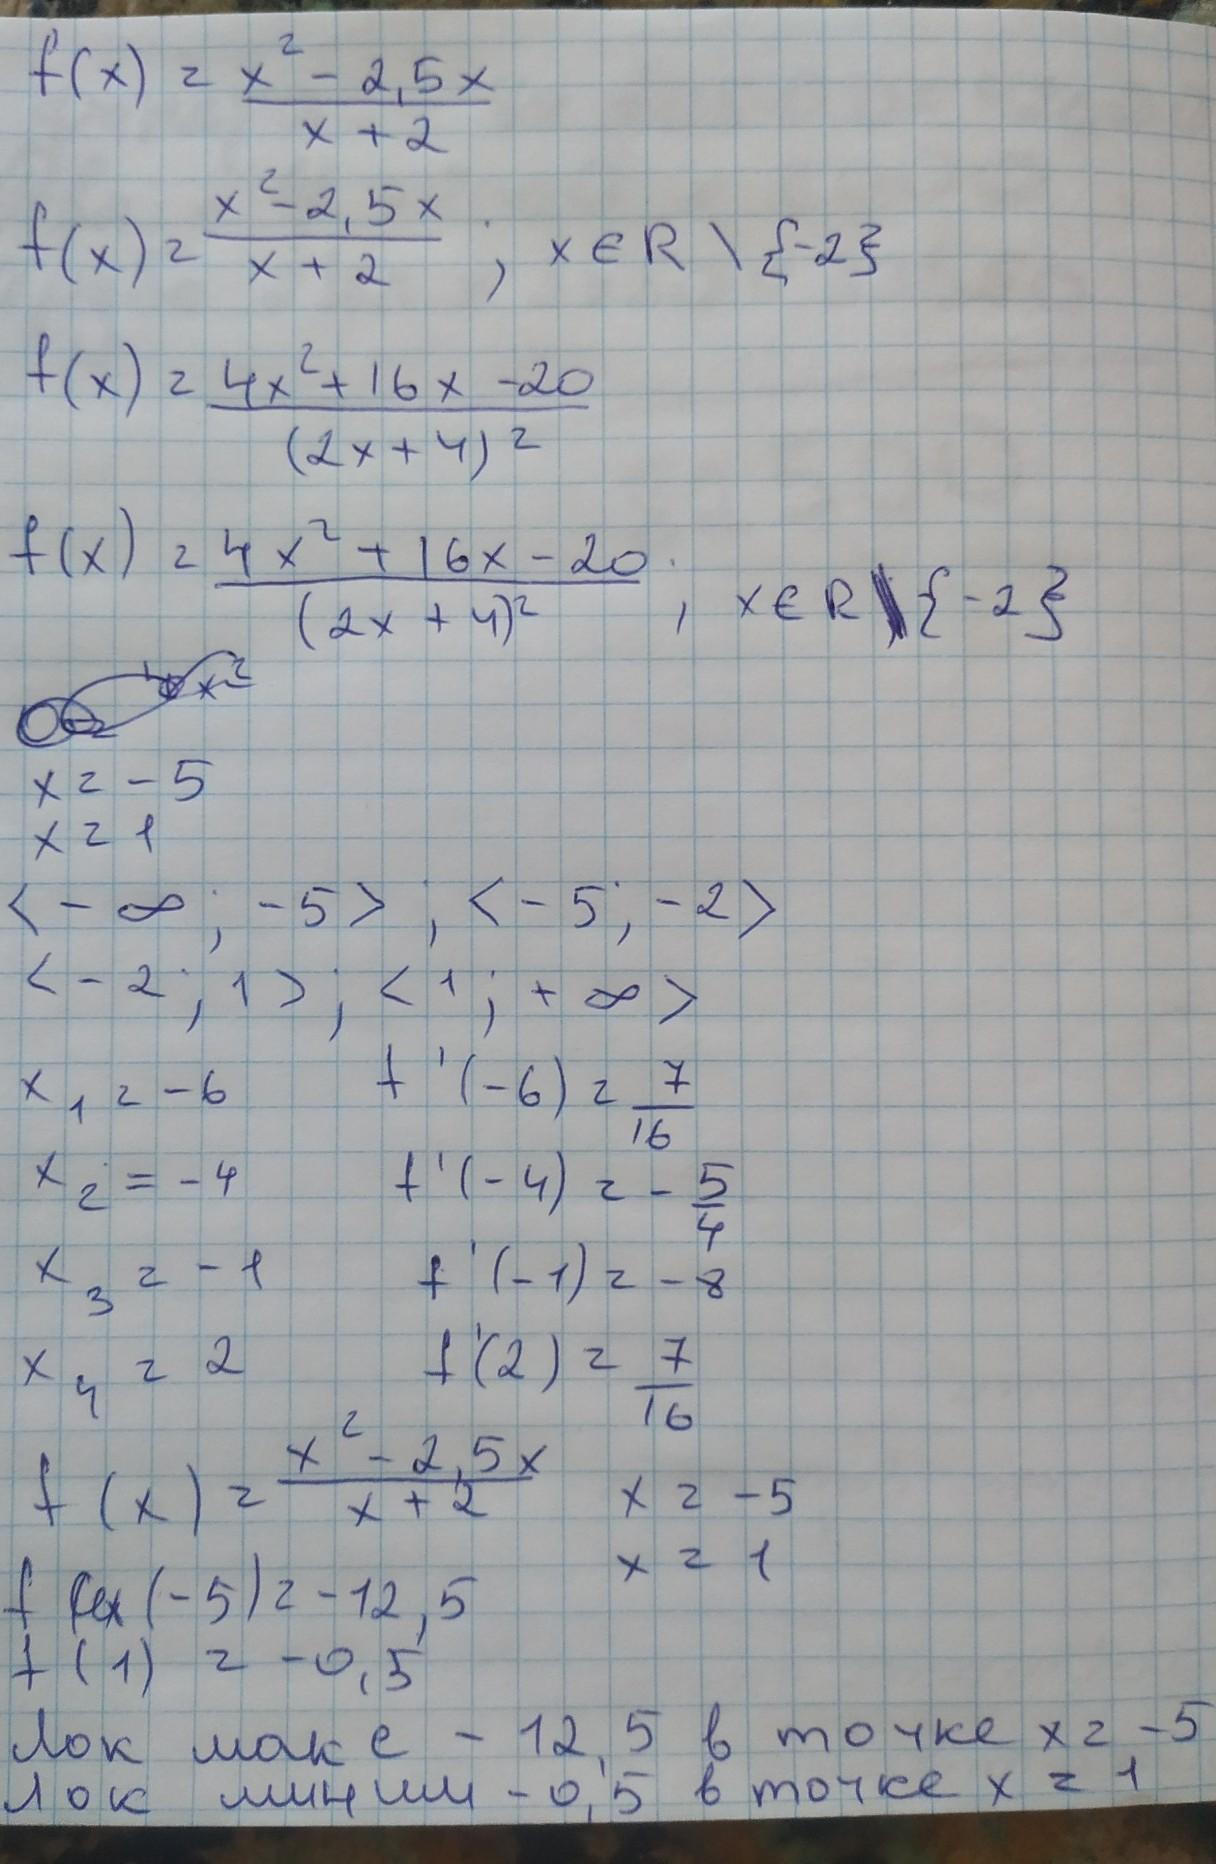 f(x) = x² - 2,5x / x + 2
f(x) = x² - 2,5x / x + 2 ; x ∈ R \ {-2}
f(x) = 4x² + 16x - 20 / (2x + 4)²
f(x) = 4x² + 16x - 20 / (2x + 4)² ; x ∈ R \ {-2}
x = -5
x = 1
< - ∞ ; -5 > ; < -5 ; -2 >
< -2 ; 1 > ; < 1 ; + ∞ >
x₁ = -6 f '(-6) = 7/16
x₂ = -4 f '(-4) = - 5/4
x₃ = -1 f '(-1) = -8
x₄ = 2 f '(2) = 7/16
f (x) = x² - 2,5x / x + 2 x = -5
x = 1
f (-5) = -12,5
f (1) = -0,5
Лок макс - 12,5 в точке x = -5
Лок миним - 0,5 в точке x = 1